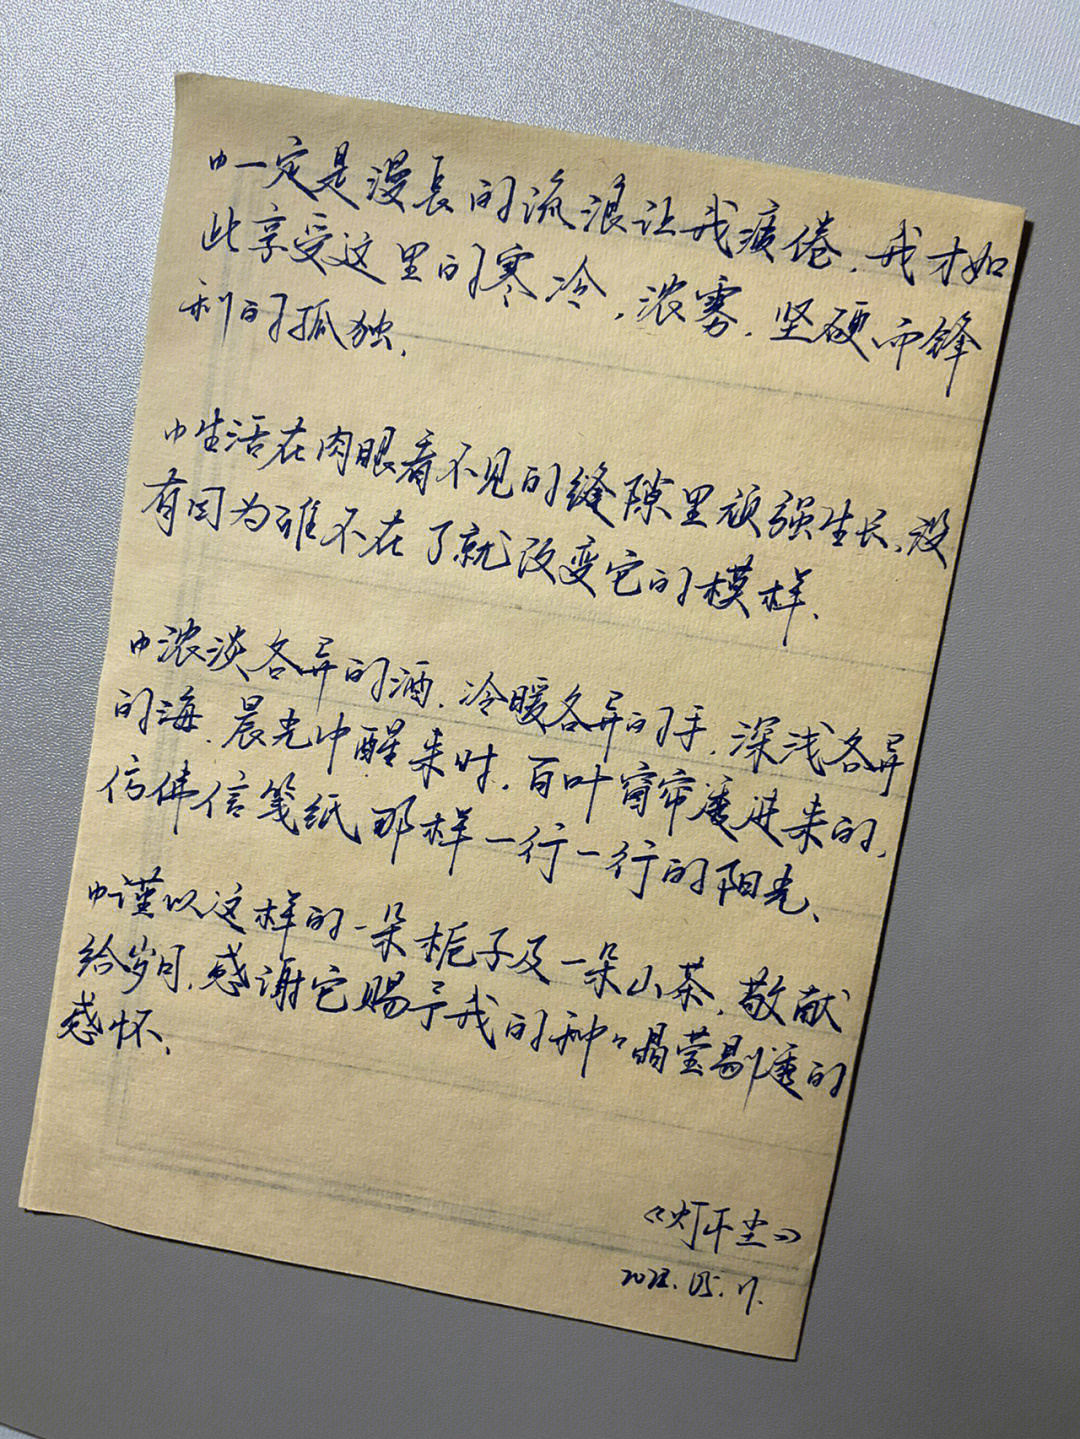 一定是漫長的流浪让我疲倦,我才如
此享受这里的寒冷,浓雾,坚硬而锋
利的孤独.
生活在肉眼看不见的缝隙里顽强生长,没
有因为谁不在了就改变它的模样.
浓淡各异的酒,冷暖各异的手,深浅各异
的海.晨光中醒来时,百叶窗帘透进来的,
仿佛信笺纸那样一行一行的阳光、
谨以这样的一朵栀子及一朵山茶,敬献
给岁月,感谢它赐予我的种々晶莹剔透的
感怀.
《灯下尘》
05.17.